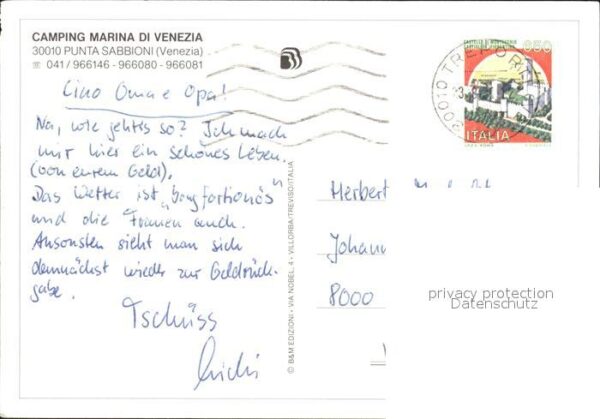 CAMPING MARINA DI VENEZIA
30010 PUNTA SABBIONI (Venezia)
☏ 041/966146 - 966080 - 966081
Ciao Oma e Opa!
Na, wie gehts so? Ich mach
mir hier ein schönes Leben.
(von eurem Geld).
Das Wetter ist "bong fortionös"
und die Frauen auch.
Ansonsten sieht man sich
demnächst wieder zur Geldrück-
gabe.
Tschüss
© B&M EDIZIONI - VIA NOBEL, 4 - VILLORBA/TREVISO/ITALIA
650
ITALIA
30010 TREPORTI
Herbert
Johann
8000
privacy protection
Datenschutz